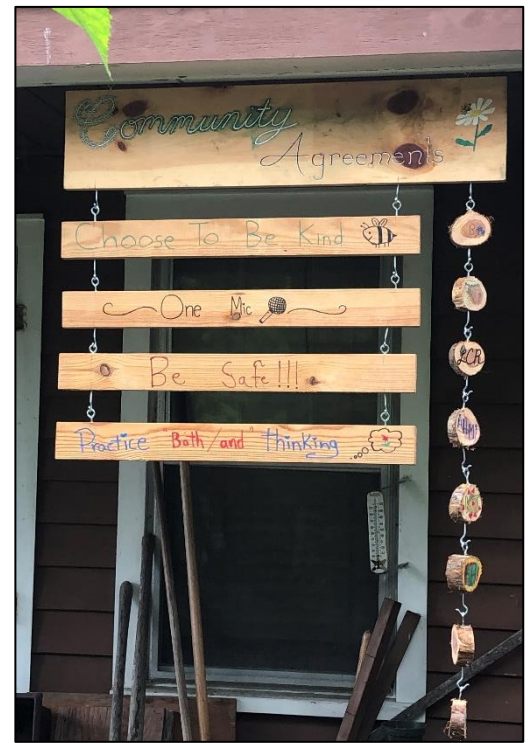 Community
Agreements
Choose To Be Kind
One Mic
Be Safe!!!
Practice "Both/and" thinking
LCR